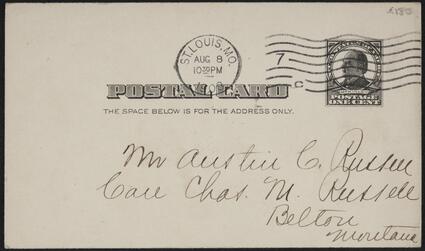 ST. LOUIS, MO.
AUG 8
10 30 PM
7
C
POSTAL CARD
THE SPACE BELOW IS FOR THE ADDRESS ONLY.
POSTAGE
ONE CENT
Mr Austin C. Russell
Care Chas. M. Russell
Belton
Montana